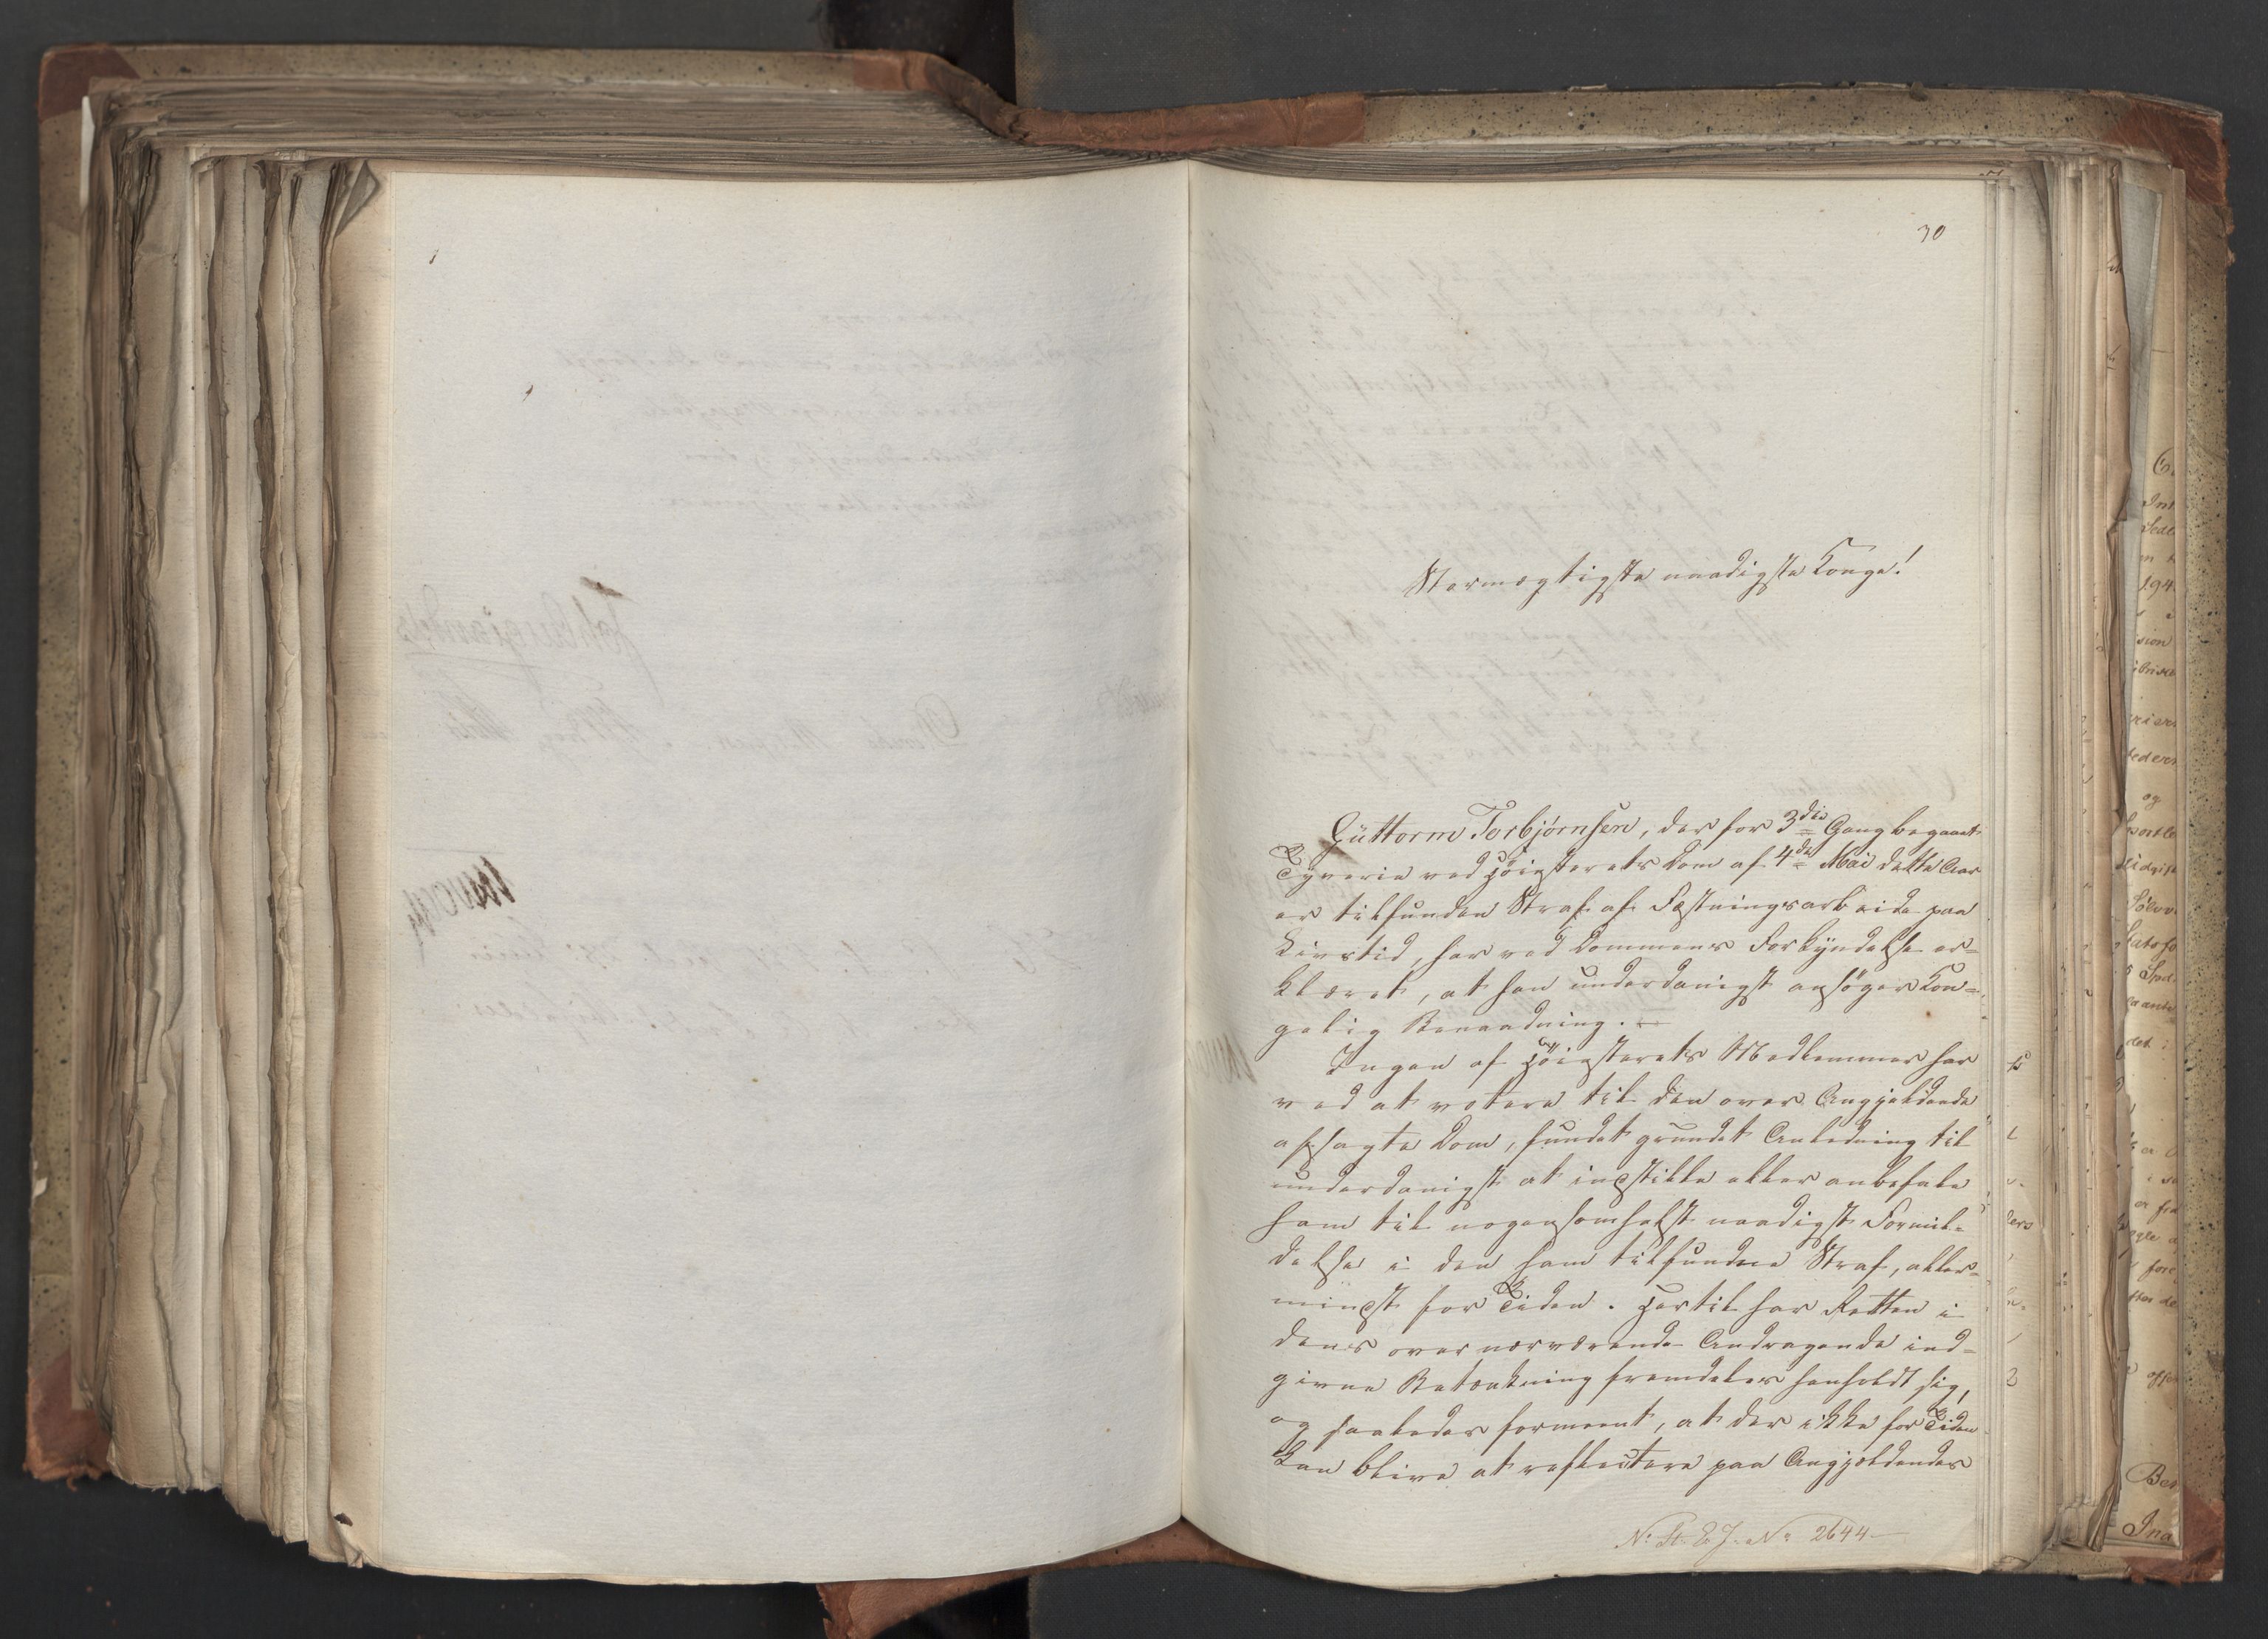 30
Stormægtigste naadigste Konge!
Guttorm Torbjørnsen, der for 3die Gang begaaet
Tyverie ved Høiesterets Dom af 4de Mai dette Aar
er tilfunden Straf af Fæstningsarbeide paa
Livstid, har ved Dommens Forkyndelse er=
klæret, at han underdanigst ansøger Kon=
gelig Benaadning.
Ingen af Høiesterets Medlemmer har
ved at votere til den over Angjældende
afsagte Dom, fundet grundet Anledning til
underdanigst at indstille eller anbefale
ham til nogensomhelst naadigst Formil=
delse i den ham tilfundne Straf, aller=
mindst for Tiden. Hertil har Retten i
dens over nærværende Andragende ind=
givne Betænkning fremdeles henholdt sig,
og saaledes formeent, at der ikke for Tiden
kan blive at reflectere paa Angjældendes
N: St: E. J. No 2644